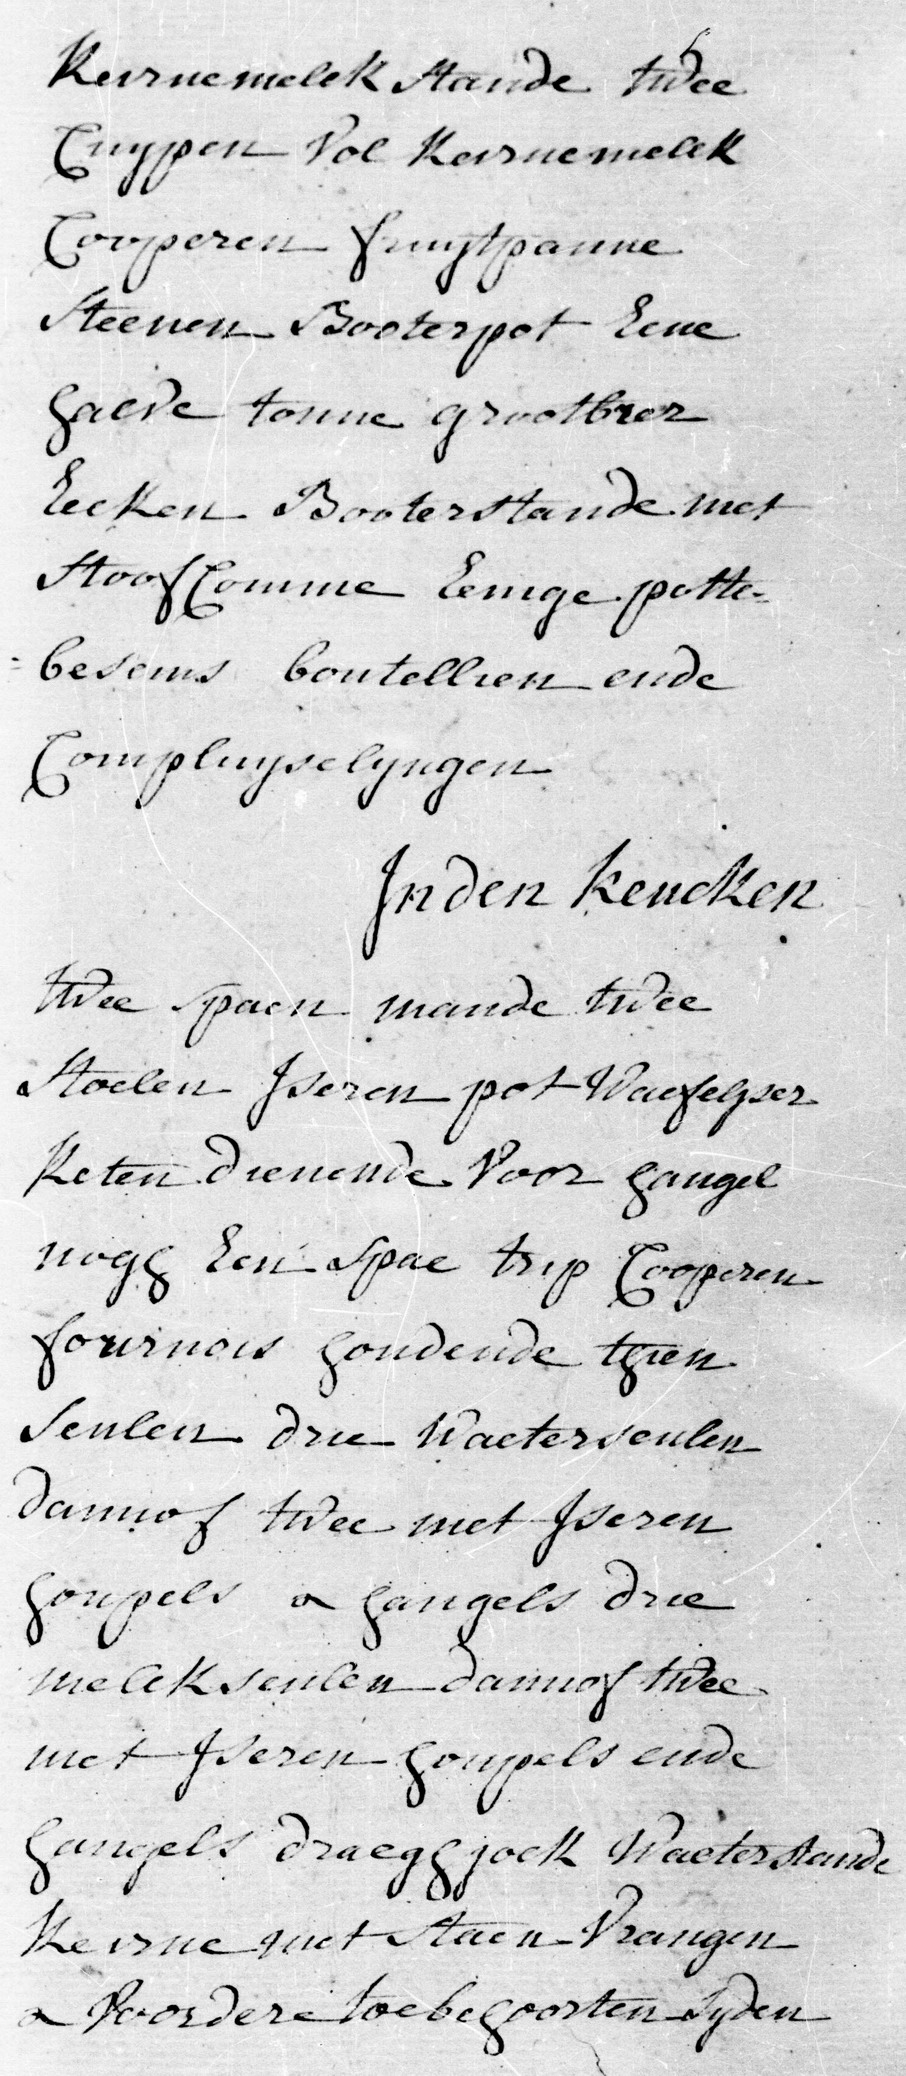 Keirnemelck stande twee
Cuypen Vol Keirnemelck
Cooperen fruytpanne
Steenen Booterpot Eene
haeve tonne grootbier
Eecken Booterstande met
Stoof Comme Eenige potte-
besems boutellien ende
Compluyselyngen
Inden Keucken
twee spaen mande twee
Stoelen Iseren pot Waefelyser
Keten dienende Voor hangel
nogh Een Spae trip Cooperen
fournois houdende thien
Seulen drie Waeterseulen
dannof twee met Iseren
houpels & hangels drie
melckseulen dannof twee
met Iseren houpels ende
hangels draeghjock Waeterstande
Keirne met Staen Vrangen
& Voordere toebehoorten Syden